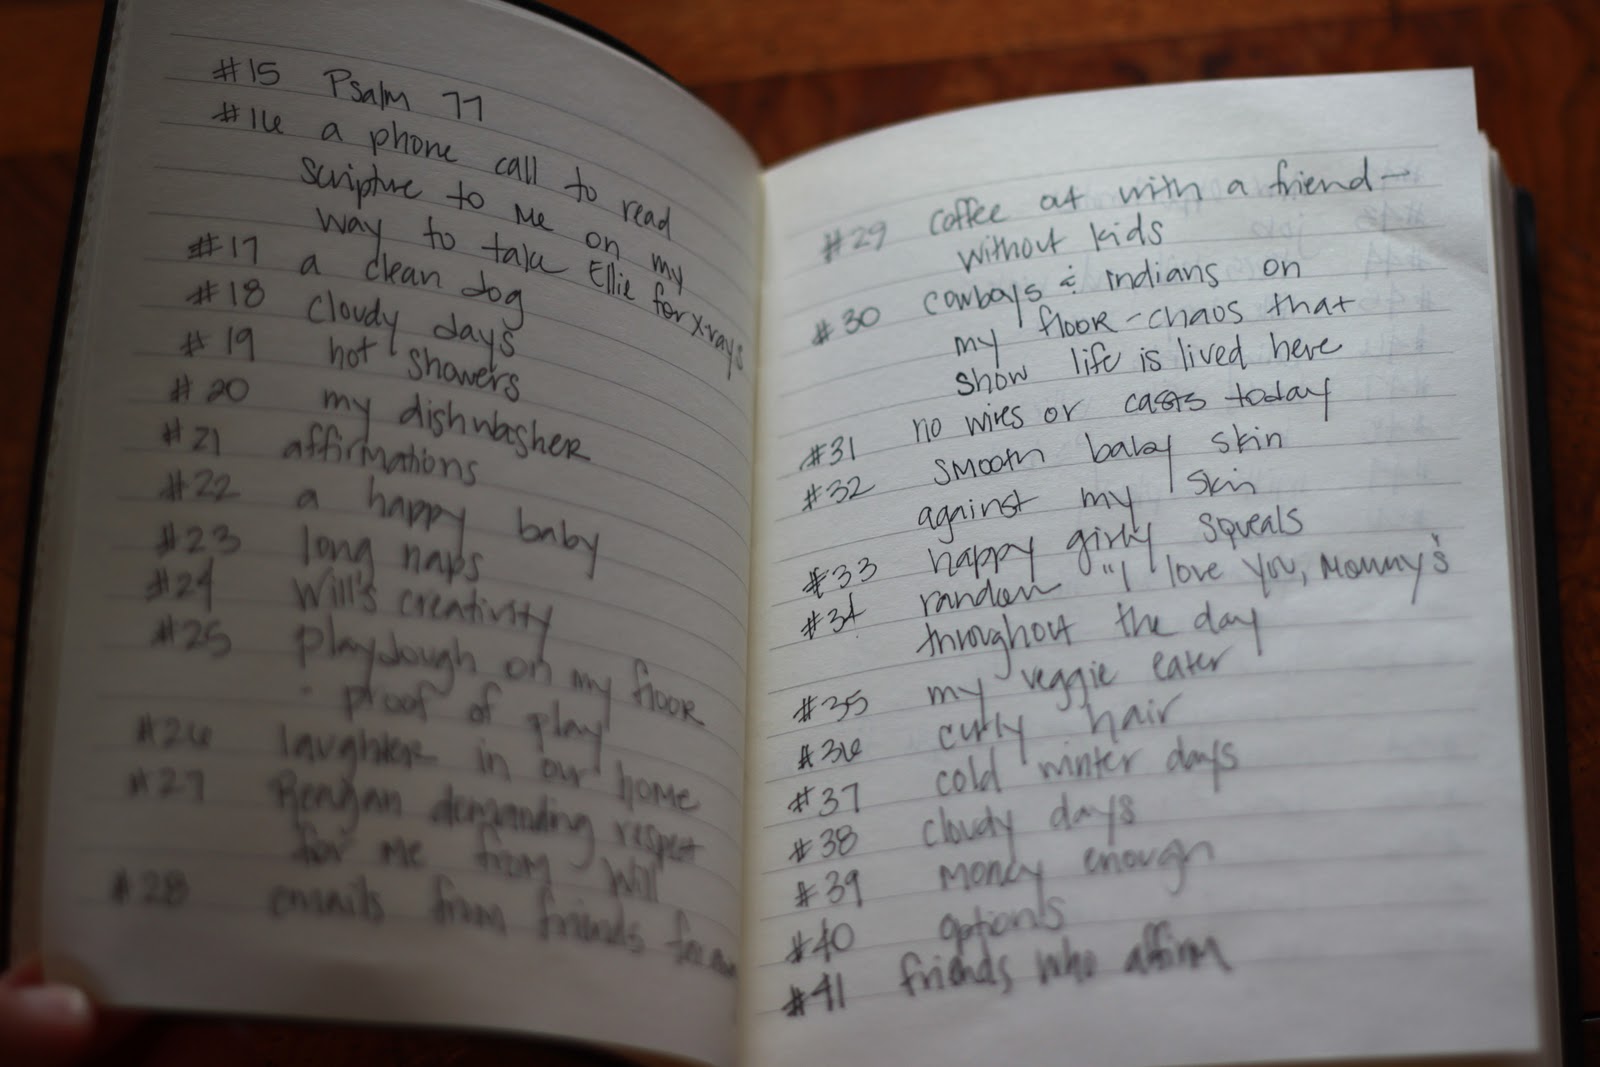 #15 Psalm 77
#16 a phone call to read
Scripture to me on my
way to take Ellie for x-rays
#17 a clean dog
#18 cloudy days
#19 hot showers
#20 my dishwasher
#21 affirmations
#22 a happy baby
#23 long naps
#24 Will's creativity
#25 playdough on my floor
- proof of play
#26 laughter in our home
#27 Reagan demanding respect
for me from Will
#28 emails from friends
#29 coffee out with a friend -
without kids
#30 cowboys & indians on
my floor - chaos that
show life is lived here
#31 no wires or casts today
#32 smooth baby skin
against my skin
#33 happy girly squeals
#34 random "I love you, Mommy's"
throughout the day
#35 my veggie eater
#36 curly hair
#37 cold winter days
#38 cloudy days
#39 money enough
#40 options
#41 friends who affirm